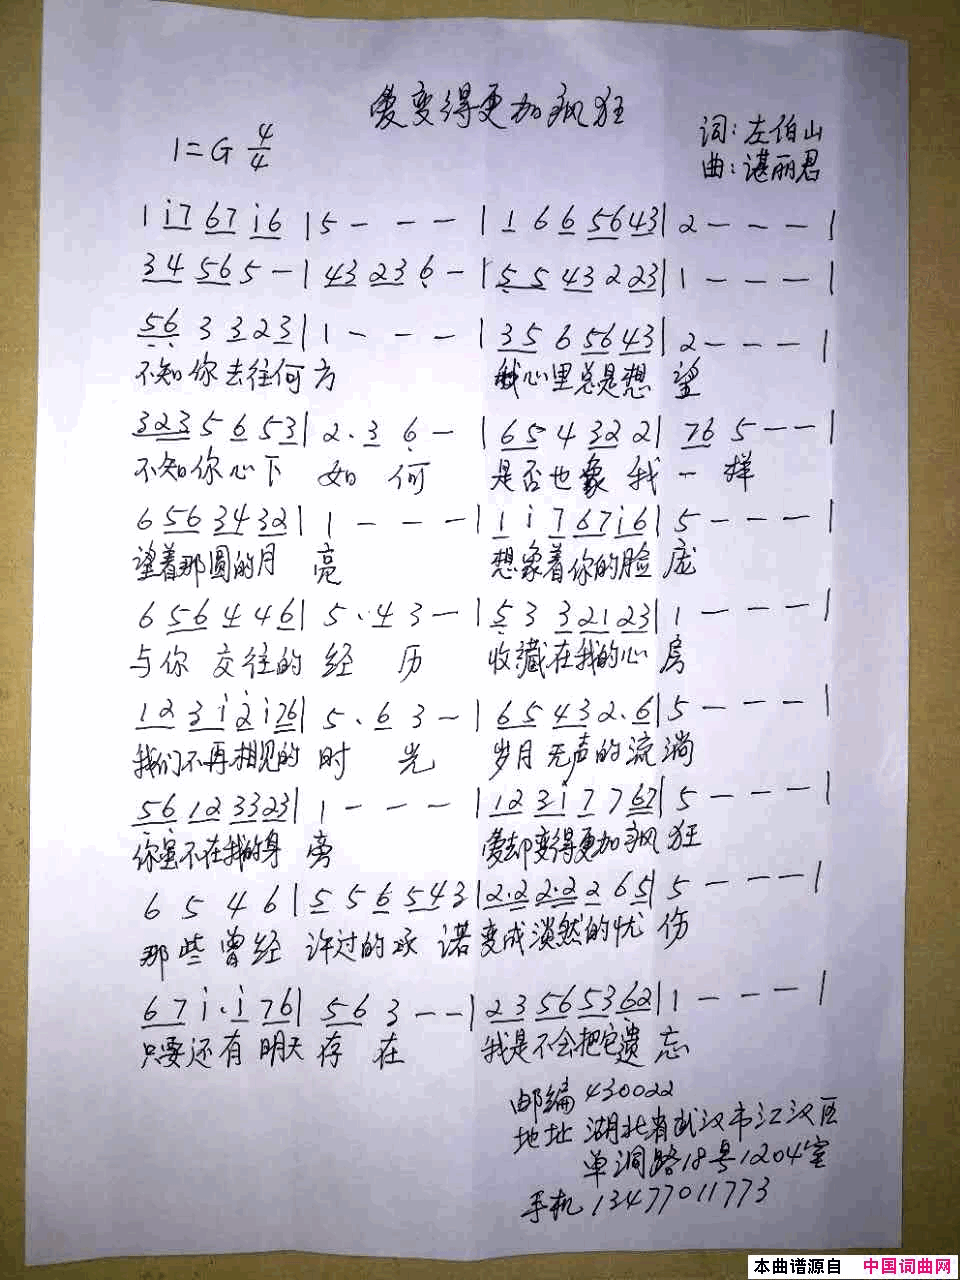 爱变得更加疯狂
1=G 4/4
词:左伯山
曲:谌丽君
1 i7 67 i6 | 5 - - - | 1 6 6 56 43 | 2 - - - |
34 56 5 - | 43 23 6 - | 55 43 2 23 | 1 - - - |
56 3 3 23 | 1 - - - | 35 6 56 43 | 2 - - - |
不知你去往何方 我心里总是想望
323 5 6 5 3 | 2· 3 6 - | 65 4 32 2 | 76 5 - - |
不知你心下如何 是否也象我一样
6 56 34 32 | 1 - - - | 1 i 7 67 i6 | 5 - - - |
望着那圆的月亮 想象着你的脸庞
6 56 4 4 6 | 5· 4 3 - | 5 3 321 23 | 1 - - - |
与你交往的经历 收藏在我的心房
12 3i 2i76 | 5· 6 3 - | 65 43 2· 6 | 5 - - - |
我们不再相见的时光 岁月无声的流淌
56 12 33 23 | 1 - - - | 12 3i 7 7 67 | 5 - - - |
你虽不在我的身旁 爱却变得更加疯狂
6 5 4 6 | 5 5 6 54 3 | 2·2 2·2 2 6 5 | 5 - - - |
那些曾经许过的承诺变成淡然的忧伤
67 i· i 76 | 56 3 - - | 23 56 53 62 | 1 - - - |
只要还有明天存在 我是不会把它遗忘
邮编 430022
地址 湖北省武汉市江汉区
单洞路18号1204室
手机 13477011773
本曲谱源自 中国词曲网